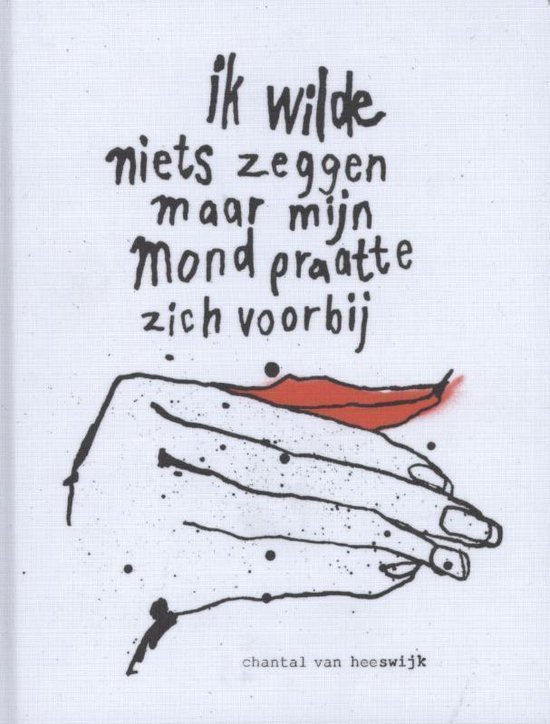 ik wilde
niets zeggen
maar mijn
mond praatte
zich voorbij
chantal van heeswijk